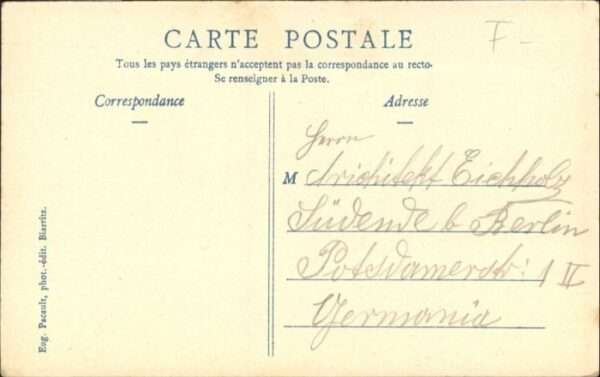 F-
CARTE POSTALE
Tous les pays étrangers n'acceptent pas la correspondance au recto-
Se renseigner à la Poste.
Correspondance
Adresse
Herrn
M Architekt Eichholz
Südende b Berlin
Potsdamerstr: 1 II
Germania
Eug. Pacault, phot.-édit. Biarritz.